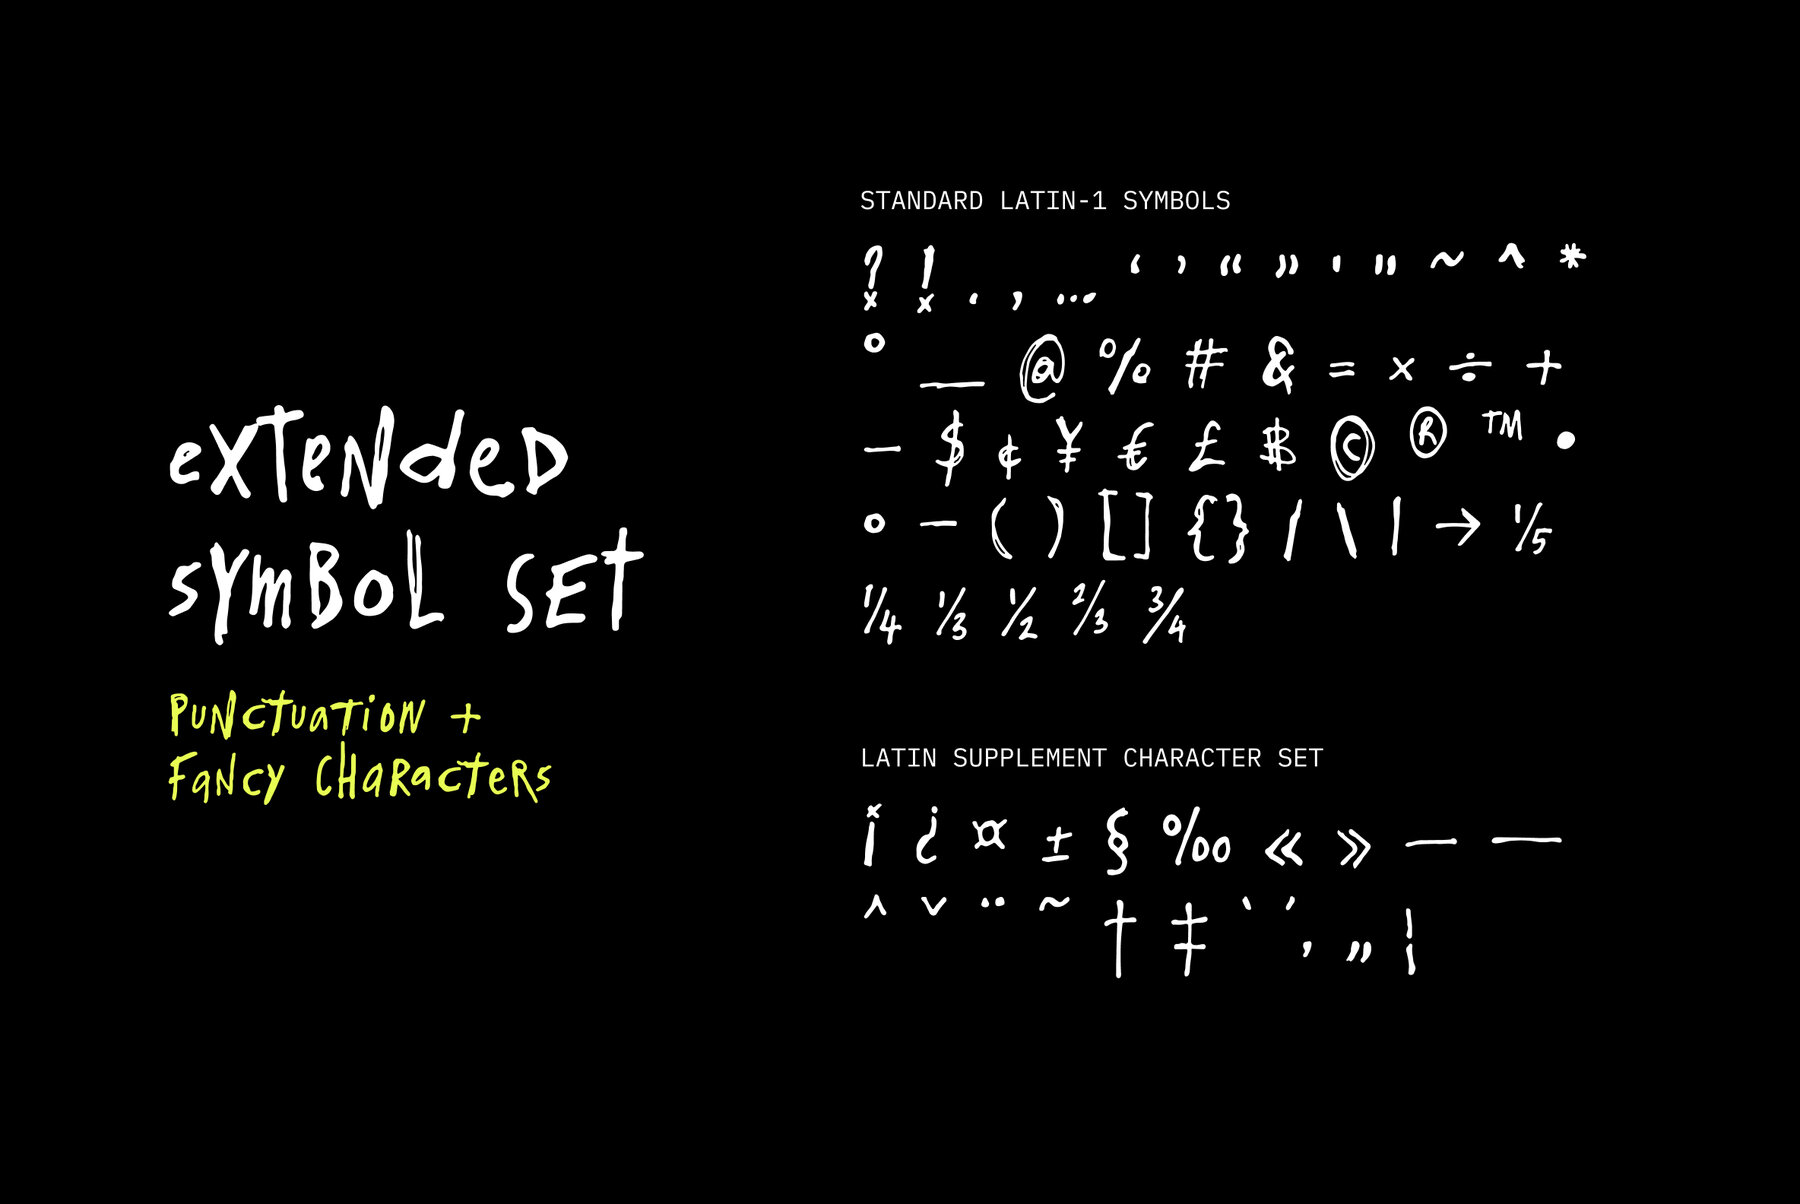 eXTeNdeD
SYmBoL SET
PUNCTUaTiON +
FaNCY CHaRaCTeRS
STANDARD LATIN-1 SYMBOLS
? ! . , … ‘ ’ “ ” ' " ~ ^ *
° _ @ % # & = × ÷ +
− $ ¢ ¥ € £ ₿ © ® ™ •
° - ( ) [ ] { } / \ | → ⅕
¼ ⅓ ½ ⅔ ¾
LATIN SUPPLEMENT CHARACTER SET
¡ ¿ ¤ ± § ‰ « » – —
ˆ ˇ ¨ ˜ † ‡ ` ´ ‚ „ ¦